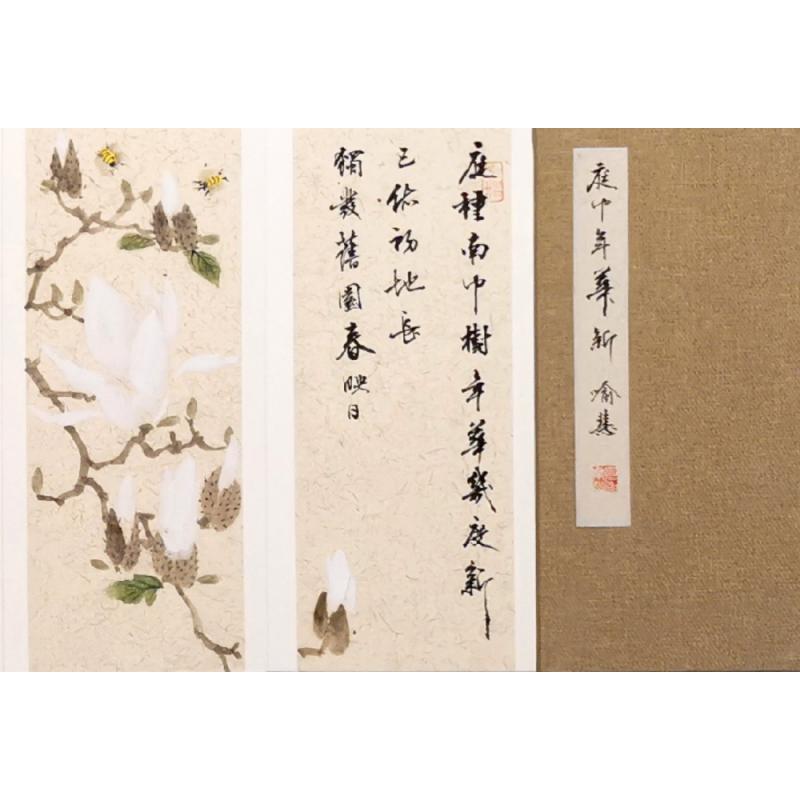 庭中年華新 喻慧
庭種南中樹年華幾度新
已依初地長
獨發舊園春映日